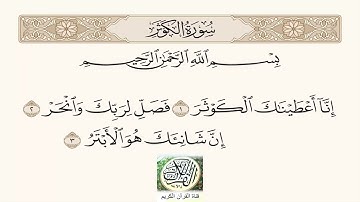 سُورَةُ الكَوْثَرِ
بِسْمِ اللَّهِ الرَّحْمَٰنِ الرَّحِيمِ
إِنَّا أَعْطَيْنَاكَ الْكَوْثَرَ ١ فَصَلِّ لِرَبِّكَ وَانْحَرْ ٢
إِنَّ شَانِئَكَ هُوَ الْأَبْتَرُ ٣
قناة القرآن الكريم